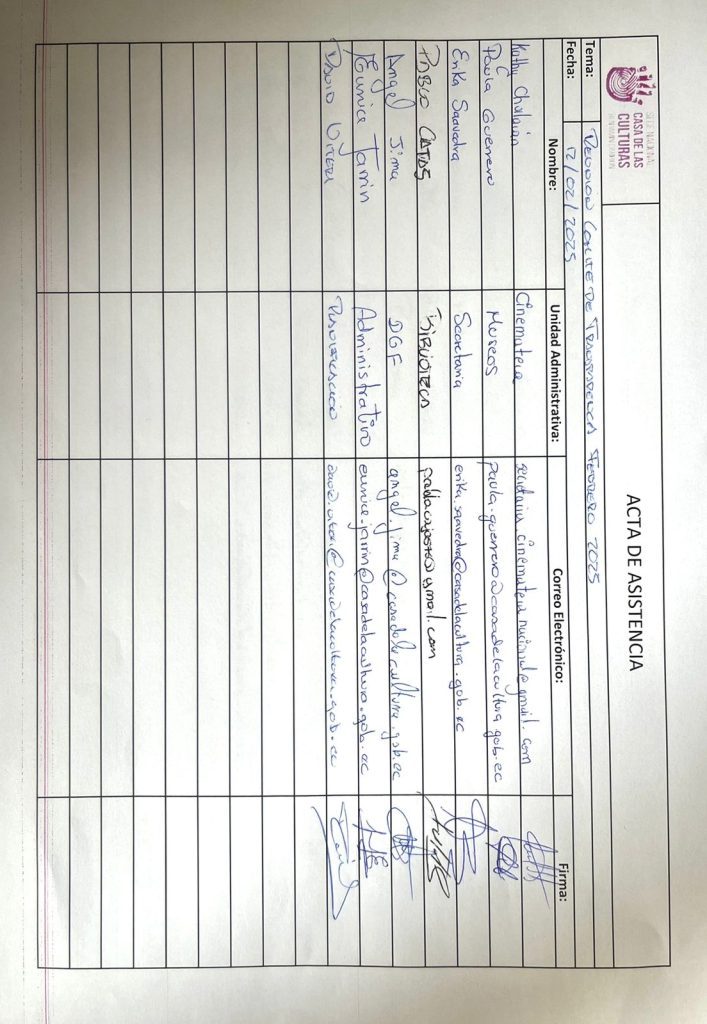 SEDE NACIONAL
CASA DE LAS
CULTURAS
ACTA DE ASISTENCIA
Tema: REUNION COMITÉ DE TRANSPARENCIA FEBRERO 2025
Fecha: 12/02/2025
Nombre: Unidad Administrativa: Correo Electrónico: Firma:
Kathy Cinemateca cinematecanacional@gmail.com
Paula Guerrero Museos paula.guerrero@casadelacultura.gob.ec
Erika Saavedra Secretaria erika.saavedra@casadelacultura.gob.ec
PABLO BIBLIOTECA
Angel Jima DGF angel.jima@casadelacultura.gob.ec
Eunice Jarrin Administrativo eunice.jarrin@casadelacultura.gob.ec
DAVID VITERI PLANIFICACIÓN david.viteri@casadelacultura.gob.ec